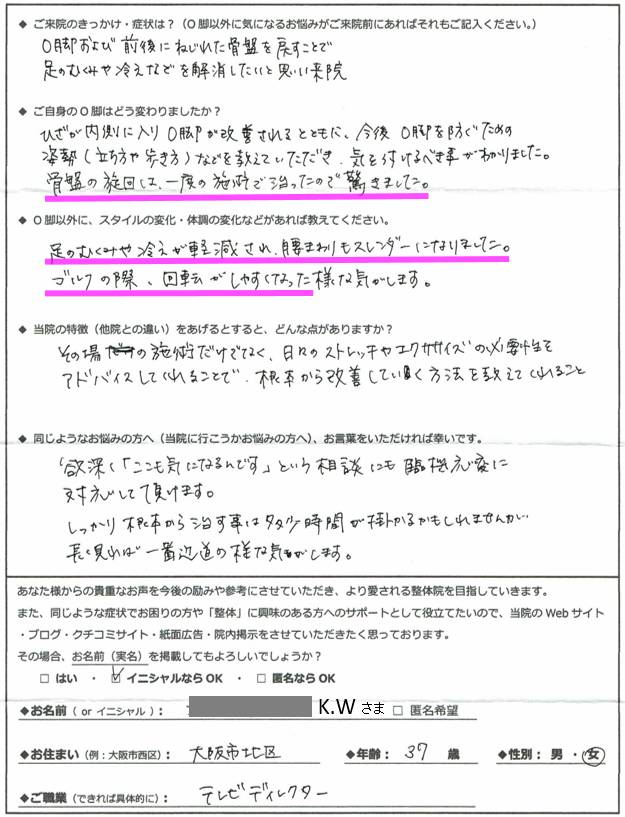 ◆ ご来院のきっかけ・症状は？（O脚以外に気になるお悩みがご来院前にあればそれもご記入ください。）
O脚および前後にねじれた骨盤を戻すことで
足のむくみや冷えなどを解消したいと思い来院
◆ ご自身のO脚はどう変わりましたか？
ひざが内側に入りO脚が改善されるとともに、今後O脚を防ぐための
姿勢（立ち方や歩き方）などを教えていただき、気を付けるべき事がわかりました。
骨盤の旋回は、一度の施術で治ったので驚きました。
◆ O脚以外に、スタイルの変化・体調の変化などがあれば教えてください。
足のむくみや冷えが軽減され、腰まわりもスレンダーになりました。
ゴルフの際、回転がしやすくなった様な気がします。
◆ 当院の特徴（他院との違い）をあげるとすると、どんな点がありますか？
その場の施術だけでなく、日々のストレッチやエクササイズの必要性を
アドバイスしてくれることで、根本から改善していく方法を教えてくれること
◆ 同じようなお悩みの方へ（当院に行こうかお悩みの方へ）、お言葉をいただければ幸いです。
欲深く「ここも気になるんです」という相談にも臨機応変に
対応して頂けます。
しっかり根本から治す事は多少時間が掛かるかもしれませんが
長く見れば一番近道の様な気がします。
あなた様からの貴重なお声を今後の励みや参考にさせていただき、より愛される整体院を目指していきます。
また、同じような症状でお困りの方や「整体」に興味のある方へのサポートとして役立てたいので、当院のWebサイト
・ブログ・クチコミサイト・紙面広告・院内掲示をさせていただきたく思っております。
その場合、お名前（実名）を掲載してもよろしいでしょうか？
□ はい ・ ☑ イニシャルならOK ・ □ 匿名ならOK
◆お名前（ or イニシャル ）： K.W さま □ 匿名希望
◆お住まい（例：大阪市西区）： 大阪市北区 ◆年齢： 37 歳 ◆性別： 男 ・ 女
◆ご職業（できれば具体的に）： テレビディレクター